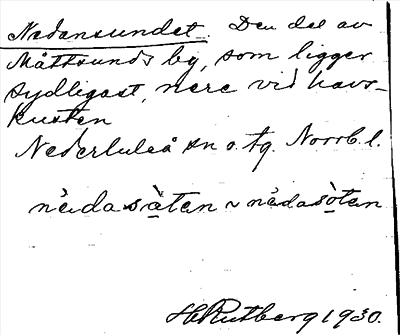 Nedansundet. Den del av
Måttsunds by, som ligger
sydligast, nere vid havs-
kusten
Nederluleå sn o. tg. Norrb. l.
nèdasàtan ~ nèdasòtan
H Rutberg 1930.